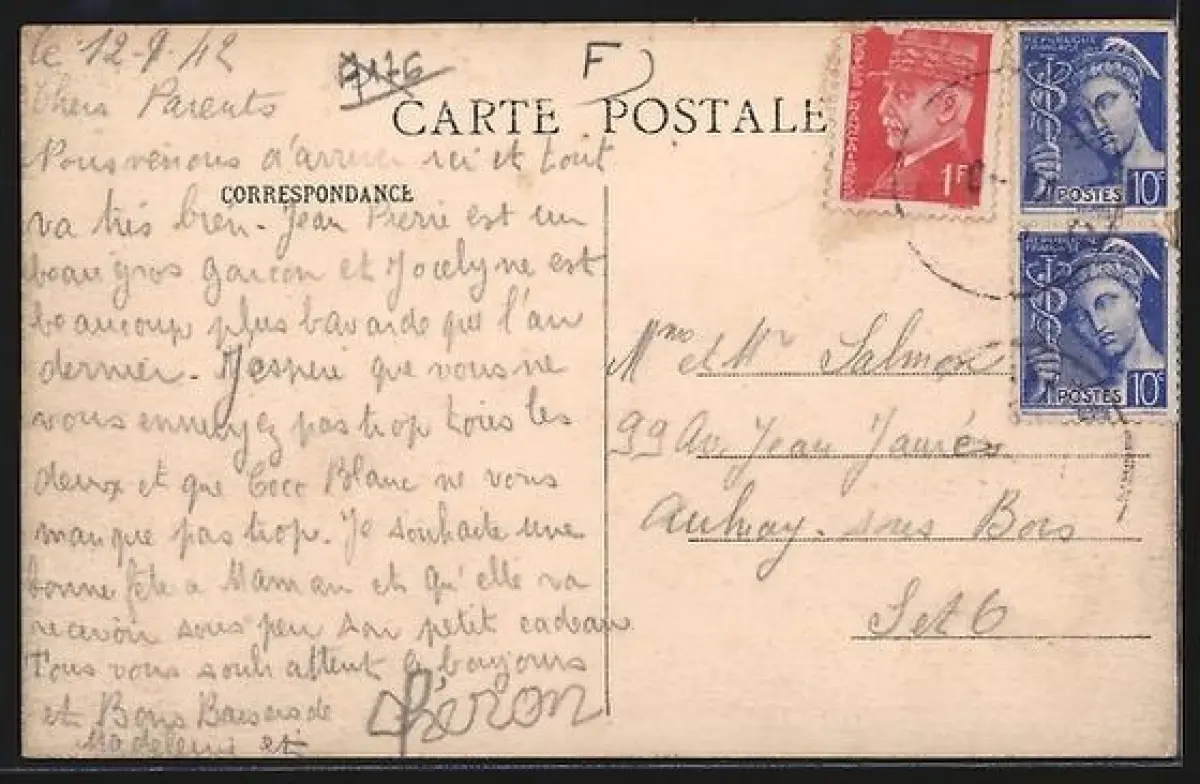 le 12-9-42
7176
F
CARTE POSTALE
Chers Parents
Nous venons d'arriver ici et tout
CORRESPONDANCE
va très bien. Jean Pierre est un
beau gros garçon et Jocelyne est
beaucoup plus bavarde que l'an
dernier. J'espère que vous ne
vous ennuyez pas trop tous les
deux et que Coco Blanc ne vous
manque pas trop. Je souhaite une
bonne fête a Maman et qu'elle va
recevoir sous peu son petit cadeau
Tous vous souhaitent le bonjours
et Bons Baisers de
Madeleine et
Mme et Mr Salmon
99 Av. Jean Jaurès
Aulnay-sous Bois
S et O
1F
REPUBLIQUE
FRANÇAISE
POSTES 10c
REPUBLIQUE
FRANÇAISE
POSTES 10c